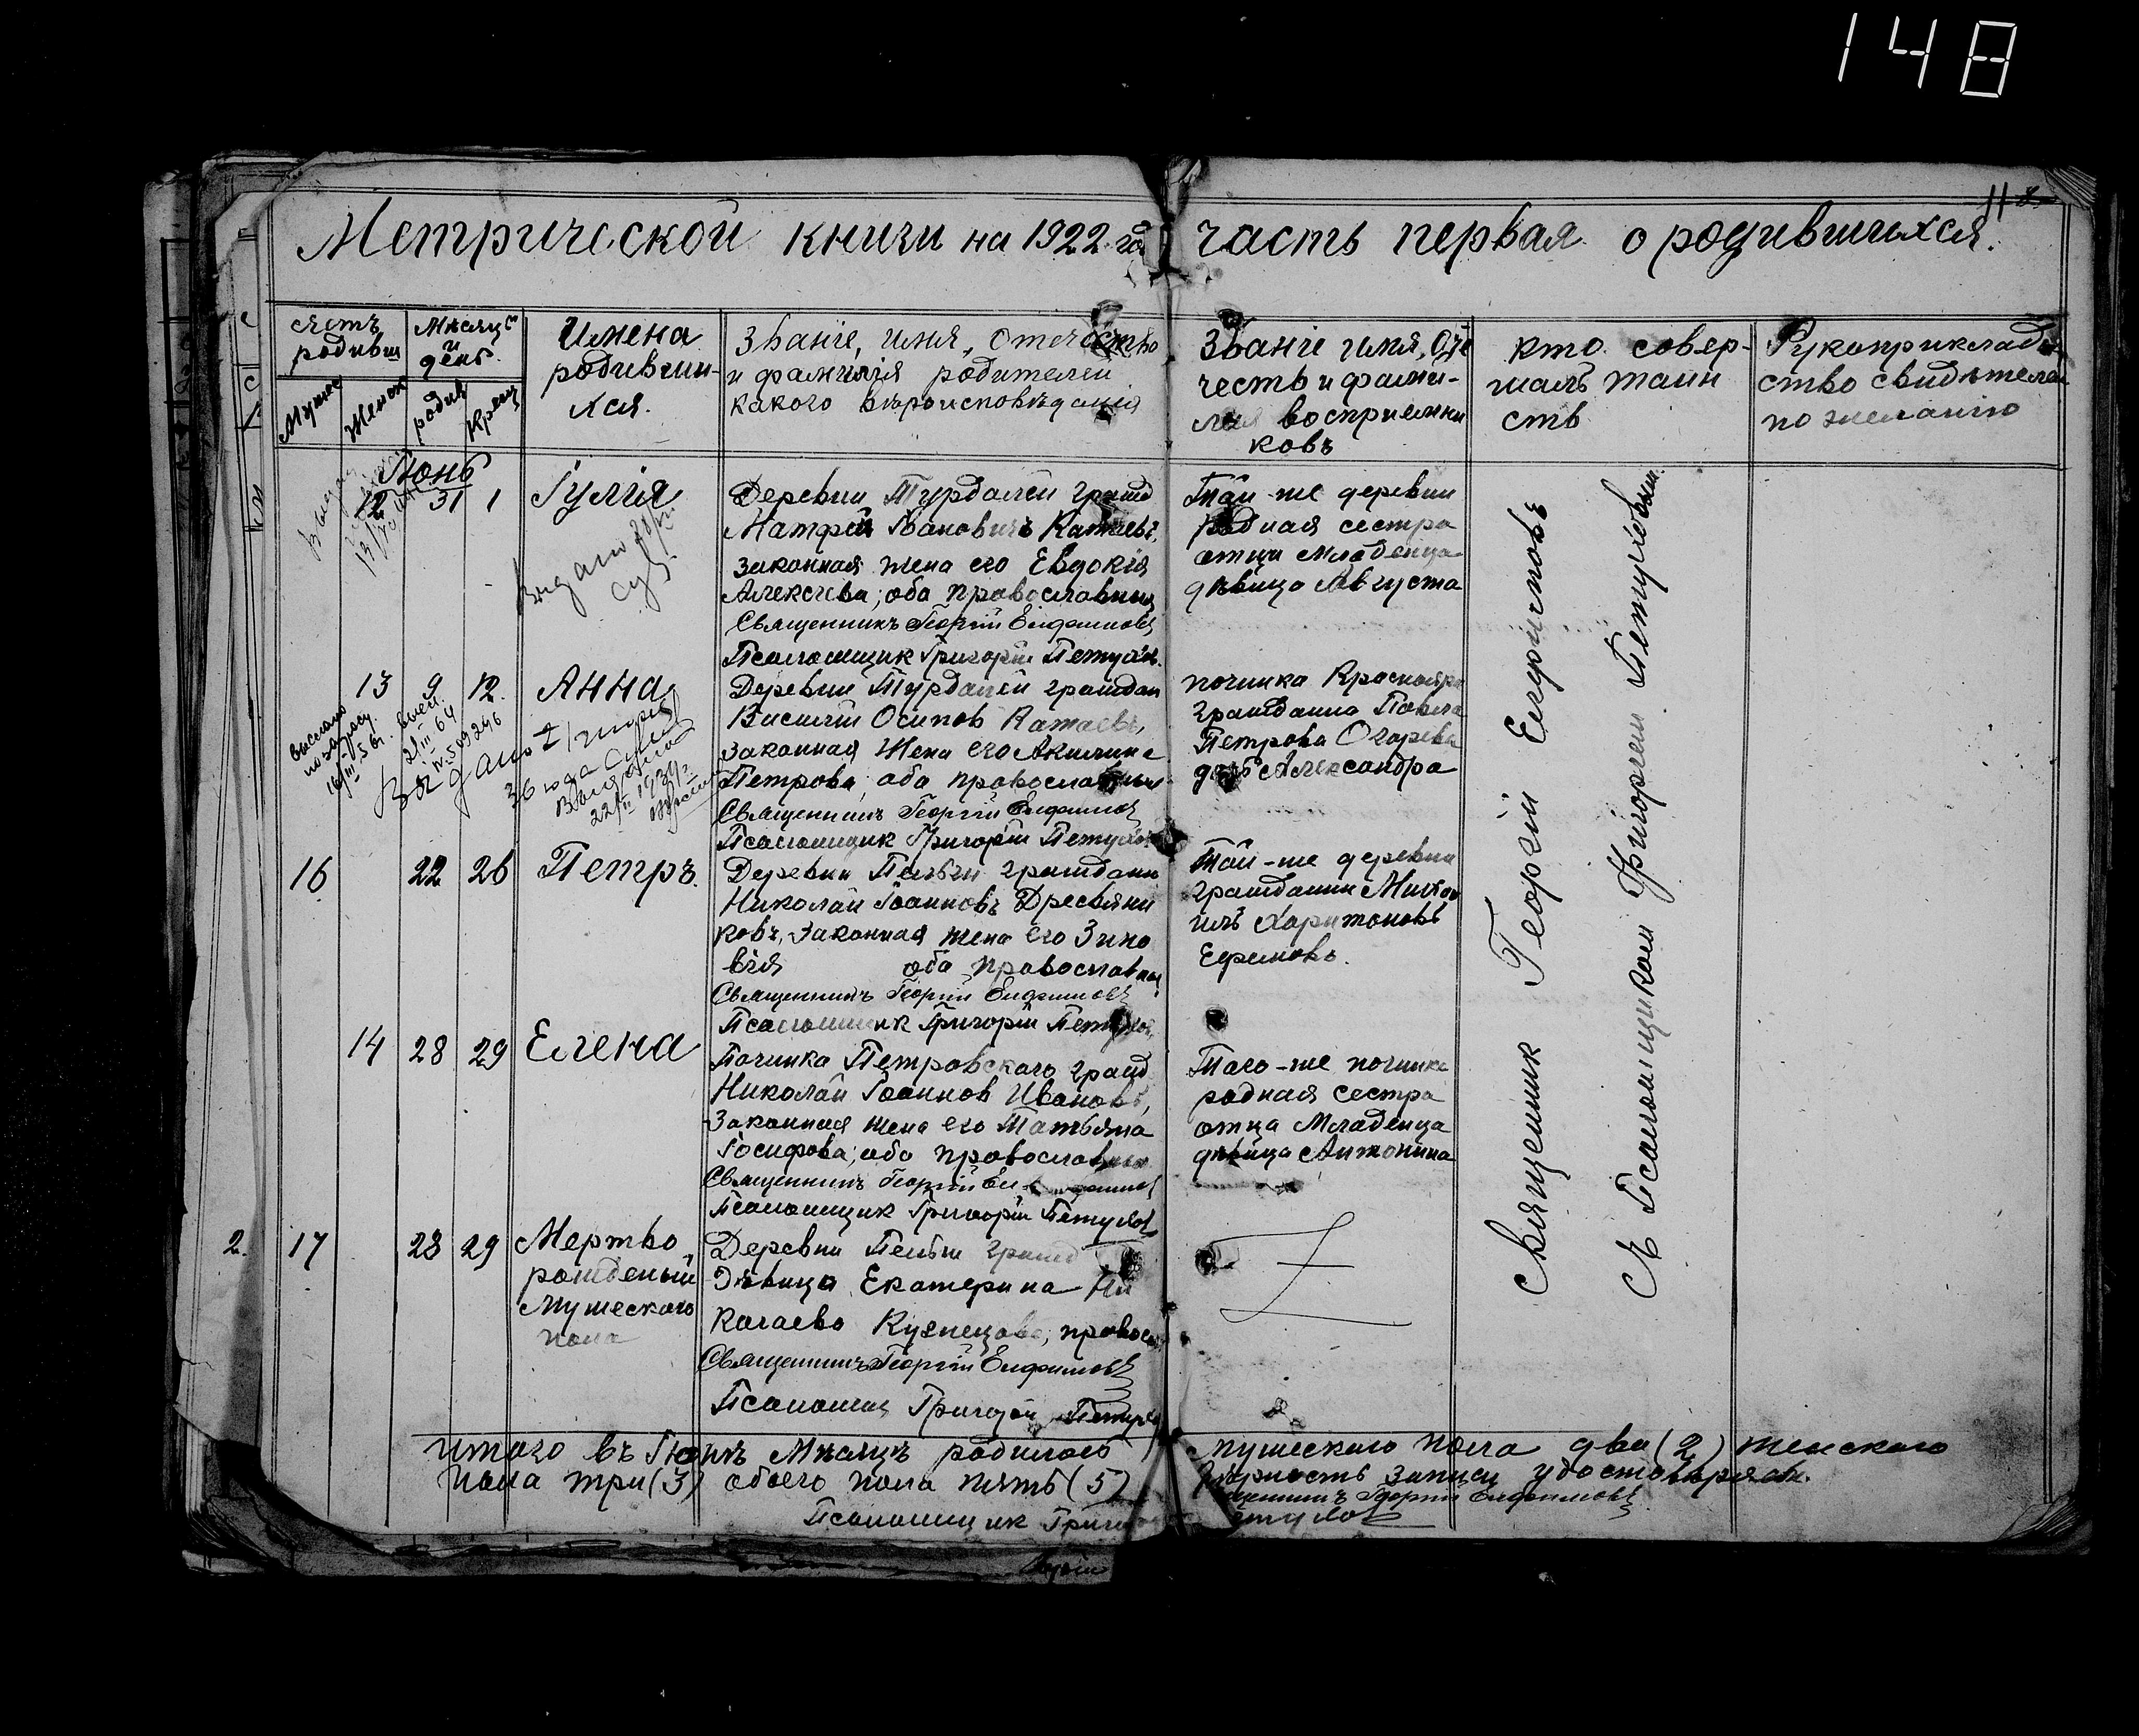 148
11
Метрической книги на 1922 год часть первая о родившихся.
счетъ
родивш
Мѣсяцъ
и
день.
Имена
родивши-
хся.
Званіе, имя, отечество
и фамилія родителей
какого вѣроисповѣданія
Званіе имя, Оте
честь и фами-
лия восприемни
ковъ
кто совер-
шалъ таин
ств
Рукоприклад
ство свидѣтелей
по желанію
Мужс
Женск
родив
Крещ
Июнь
12 31 1 Іулія
Деревни Турдалей гражд
Матфей Іванович Катаевъ,
законная жена его Евдокія
Алексѣева; оба православныя
Священникъ Георгій Елифимовъ
Псаломщик Григорій Петухов.
Той-же деревни
родная сестра
отца младенца
дѣвица Августа
Выдано
13 9 12. Анна
Деревни Турдалей граждан
Василій Осипов Катаевъ,
законная жена его Акилина
Петрова, оба православныя
Священникъ Георгій Елифимовъ
Псаломщик Григорій Петухов
починка Краснояра
гражданина Павла
Петрова Огарева
дочь Александра
выслано
по запросу
Выдано
16 22 26 Петръ.
Деревни Пельги граждани
Николай Іоанновъ Дресвянни
ковъ, законная жена его Зино
вія оба православныя
Священникъ Георгій Елифимовъ
Псаломщик Григорій Петухов,
Той-же деревни
гражданин Михаи
илъ Харитоновъ
Ефимовъ.
14 28 29 Елена
Починка Петровского гражд
Николай Іоаннов Ивановъ,
законная жена его Татьяна
Іосифова; оба православныя
Священникъ Георгій Елифимовъ
Псаломщик Григорій Петухов
Того-же починка
родная сестра
отца Младенца
дѣвица Антонина
2. 17 28 29 Мертво
рожденый
Мужеского
пола
Деревни Пельги гражд
Дѣвица Екатерина Ни
колаева Кузнецова; правосл
Священникъ Георгій Елифимовъ
Псаломщ Григорій Петухов
Священник Георгій Елифимовъ
Съ Псаломщиком Григорием Петуховым.
итого въ Іюнѣ Мѣсяцѣ родилось мужеского пола два (2) женского
пола три (3) обоего пола пять (5) Вѣрность записи удостовѣряем.
Священникъ Георгій Елифимовъ
Псаломщик Григорій Петухов